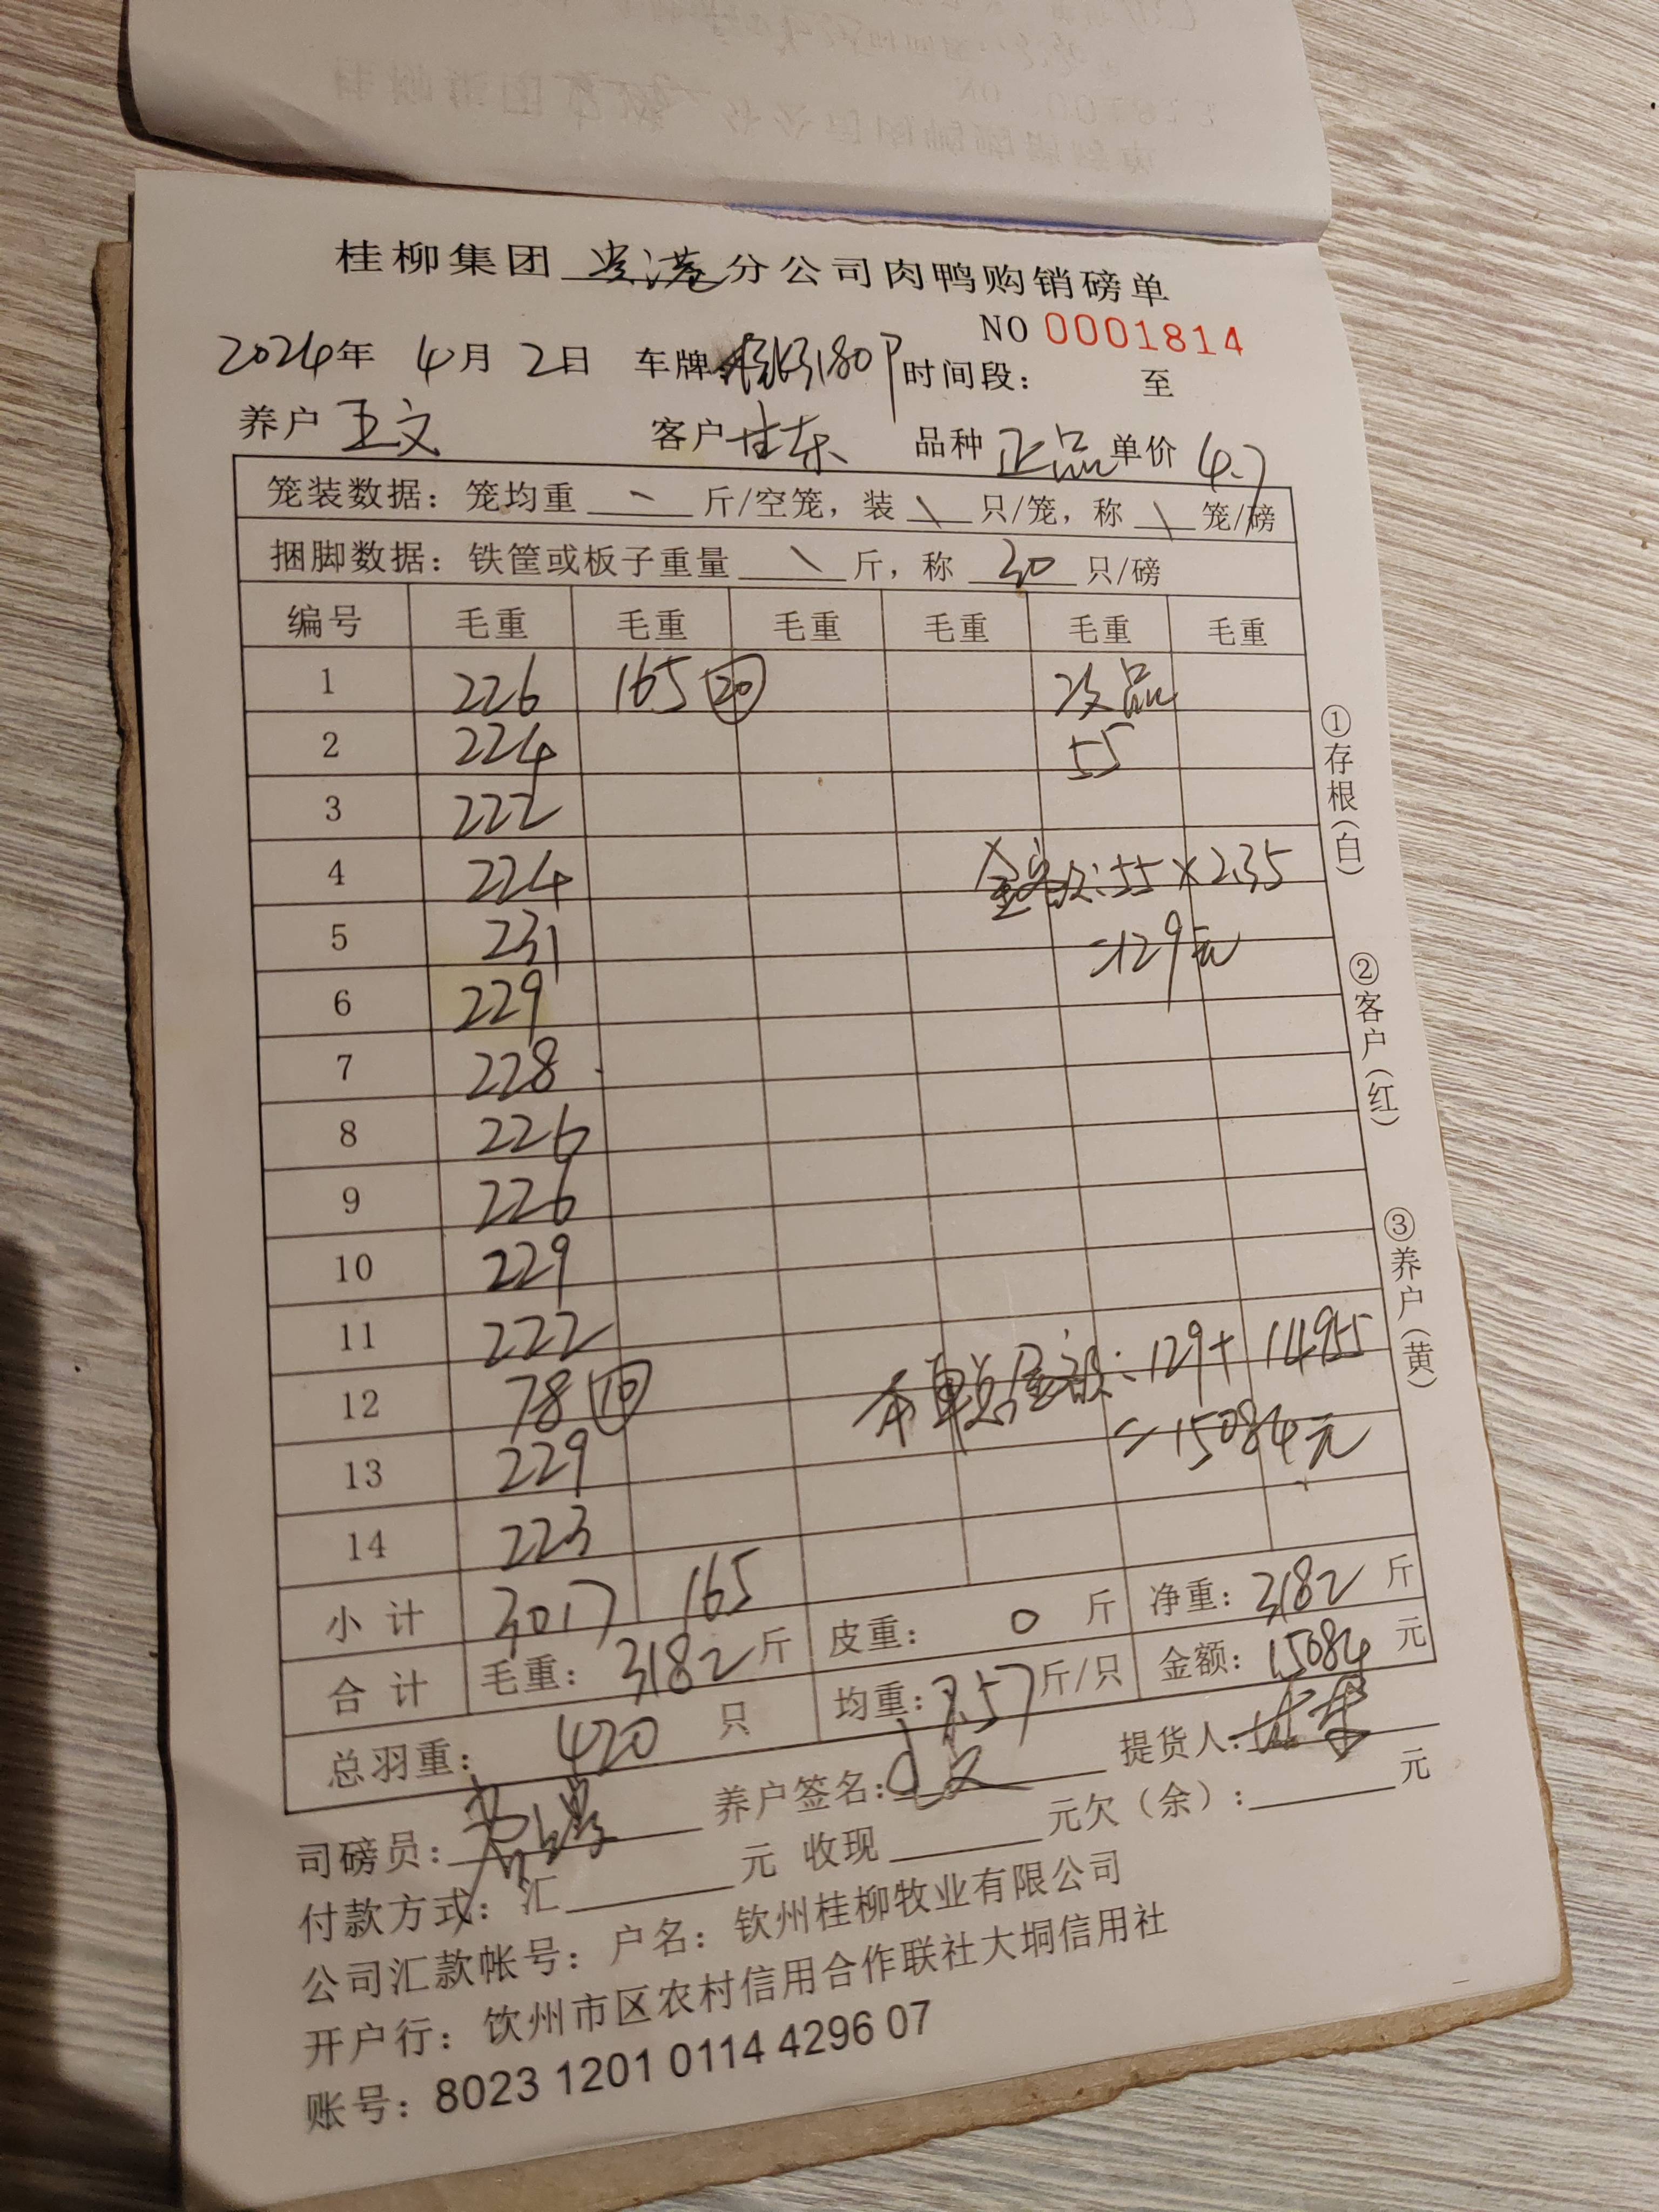 桂柳集团 贵港 分公司肉鸭购销磅单
NO 0001814
2024年 4月 2日 车牌 180P 时间段： 至
养户 王文 客户 甘东 品种 正品 单价 4.7
笼装数据：笼均重 \ 斤/空笼，装 \ 只/笼，称 \ 笼/磅
捆脚数据：铁筐或板子重量 \ 斤，称 30 只/磅
编号 毛重 毛重 毛重 毛重 毛重 毛重
1 226 165 20 次品
2 224 55
3 222
4 224 金额:55×2.35
5 231 =129元
6 229
7 228
8 226
9 226
10 229
11 222 本单总金额:129+14955
12 78 10 =15084元
13 229
14 223
小计 3017 165 皮重： 0 斤 净重：3182 斤
合计 毛重：3182 斤 均重：7.57 斤/只 金额：15084 元
总羽重： 420 只
司磅员： 养户签名：王文 提货人：甘东
付款方式：汇 元 收现 元欠（余）： 元
公司汇款帐号：户名：钦州桂柳牧业有限公司
开户行：钦州市区农村信用合作联社大垌信用社
账号：8023 1201 0114 4296 07
①存根（白）
②客户（红）
③养户（黄）